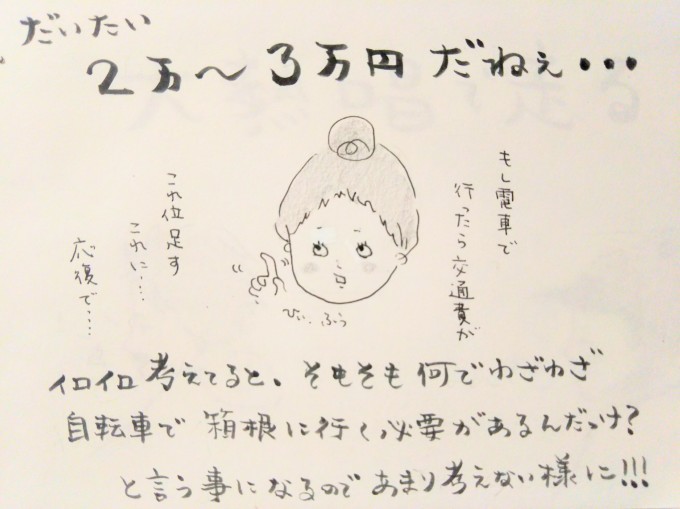 だいたい
2万〜3万円だねぇ・・・
もし電車で
行ったら交通費が
これ位足す
これに・・・
応復で・・・・
ひぃ、ふぅ
イロイロ考えてると、そもそも何でわざわざ
自転車で箱根に行く必要があるんだっけ?
と言う事になるのであまり考えない様に!!!